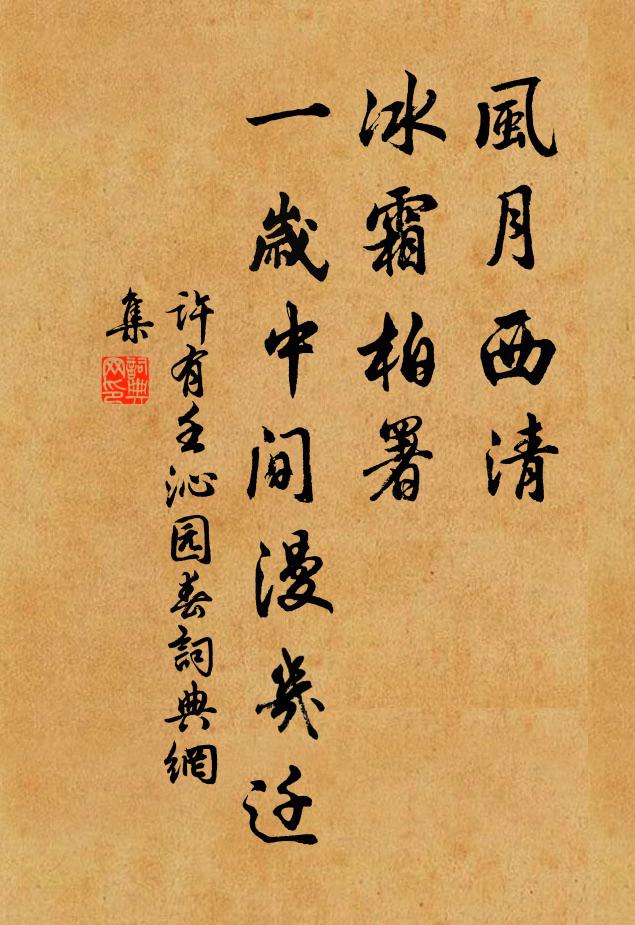 風月西清
冰霜柏署
一歲中間漫幾迁
许有壬沁园春詞典網
集
詞典
网印